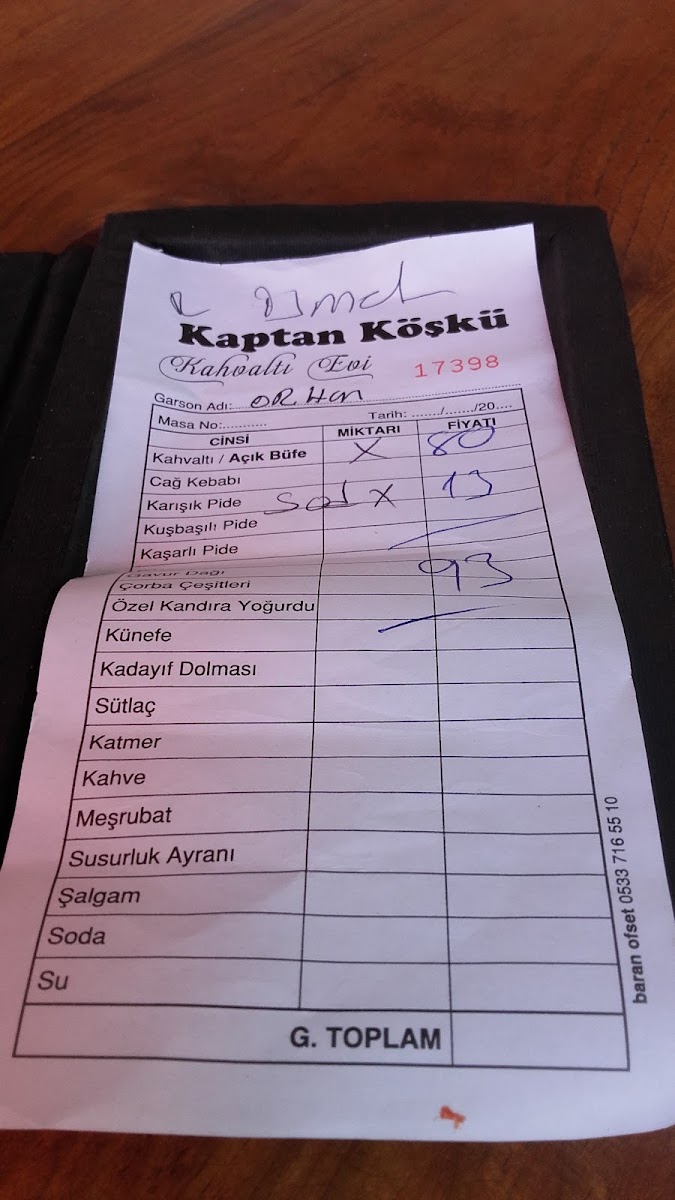 Kaptan Köşkü
Kahvaltı Evi
17398
Garson Adı:.. ORHan
Masa No:........... Tarih: ......./......./20....
CİNSİ MİKTARI FİYATI
Kahvaltı / Açık Büfe X 80
Cağ Kebabı
Karışık Pide X 13
Kuşbaşılı Pide
Kaşarlı Pide
Gavur Dağı 93
Çorba Çeşitleri
Özel Kandıra Yoğurdu
Künefe
Kadayıf Dolması
Sütlaç
Katmer
Kahve
Meşrubat
Susurluk Ayranı
Şalgam
Soda
Su
G. TOPLAM
baran ofset 0533 716 55 10